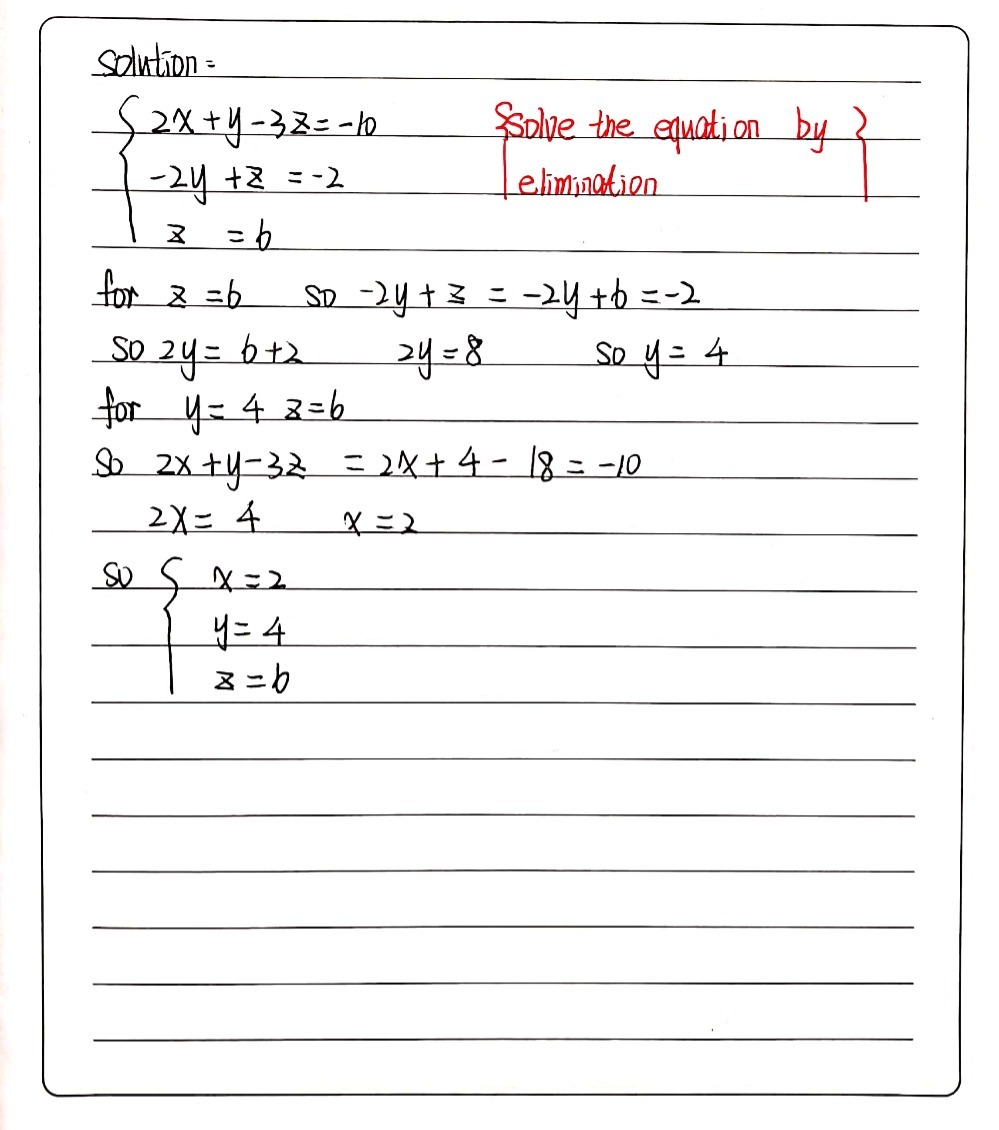 Solution:
2x+y-3z=-10
Solve the equation by
-2y+z=-2
elimination
z=6
for z=6 so -2y+z=-2y+6=-2
so 2y=6+2 2y=8 so y=4
for y=4 z=6
So 2x+y-3z=2x+4-18=-10
2x=4 x=2
so { x=2
y=4
z=6